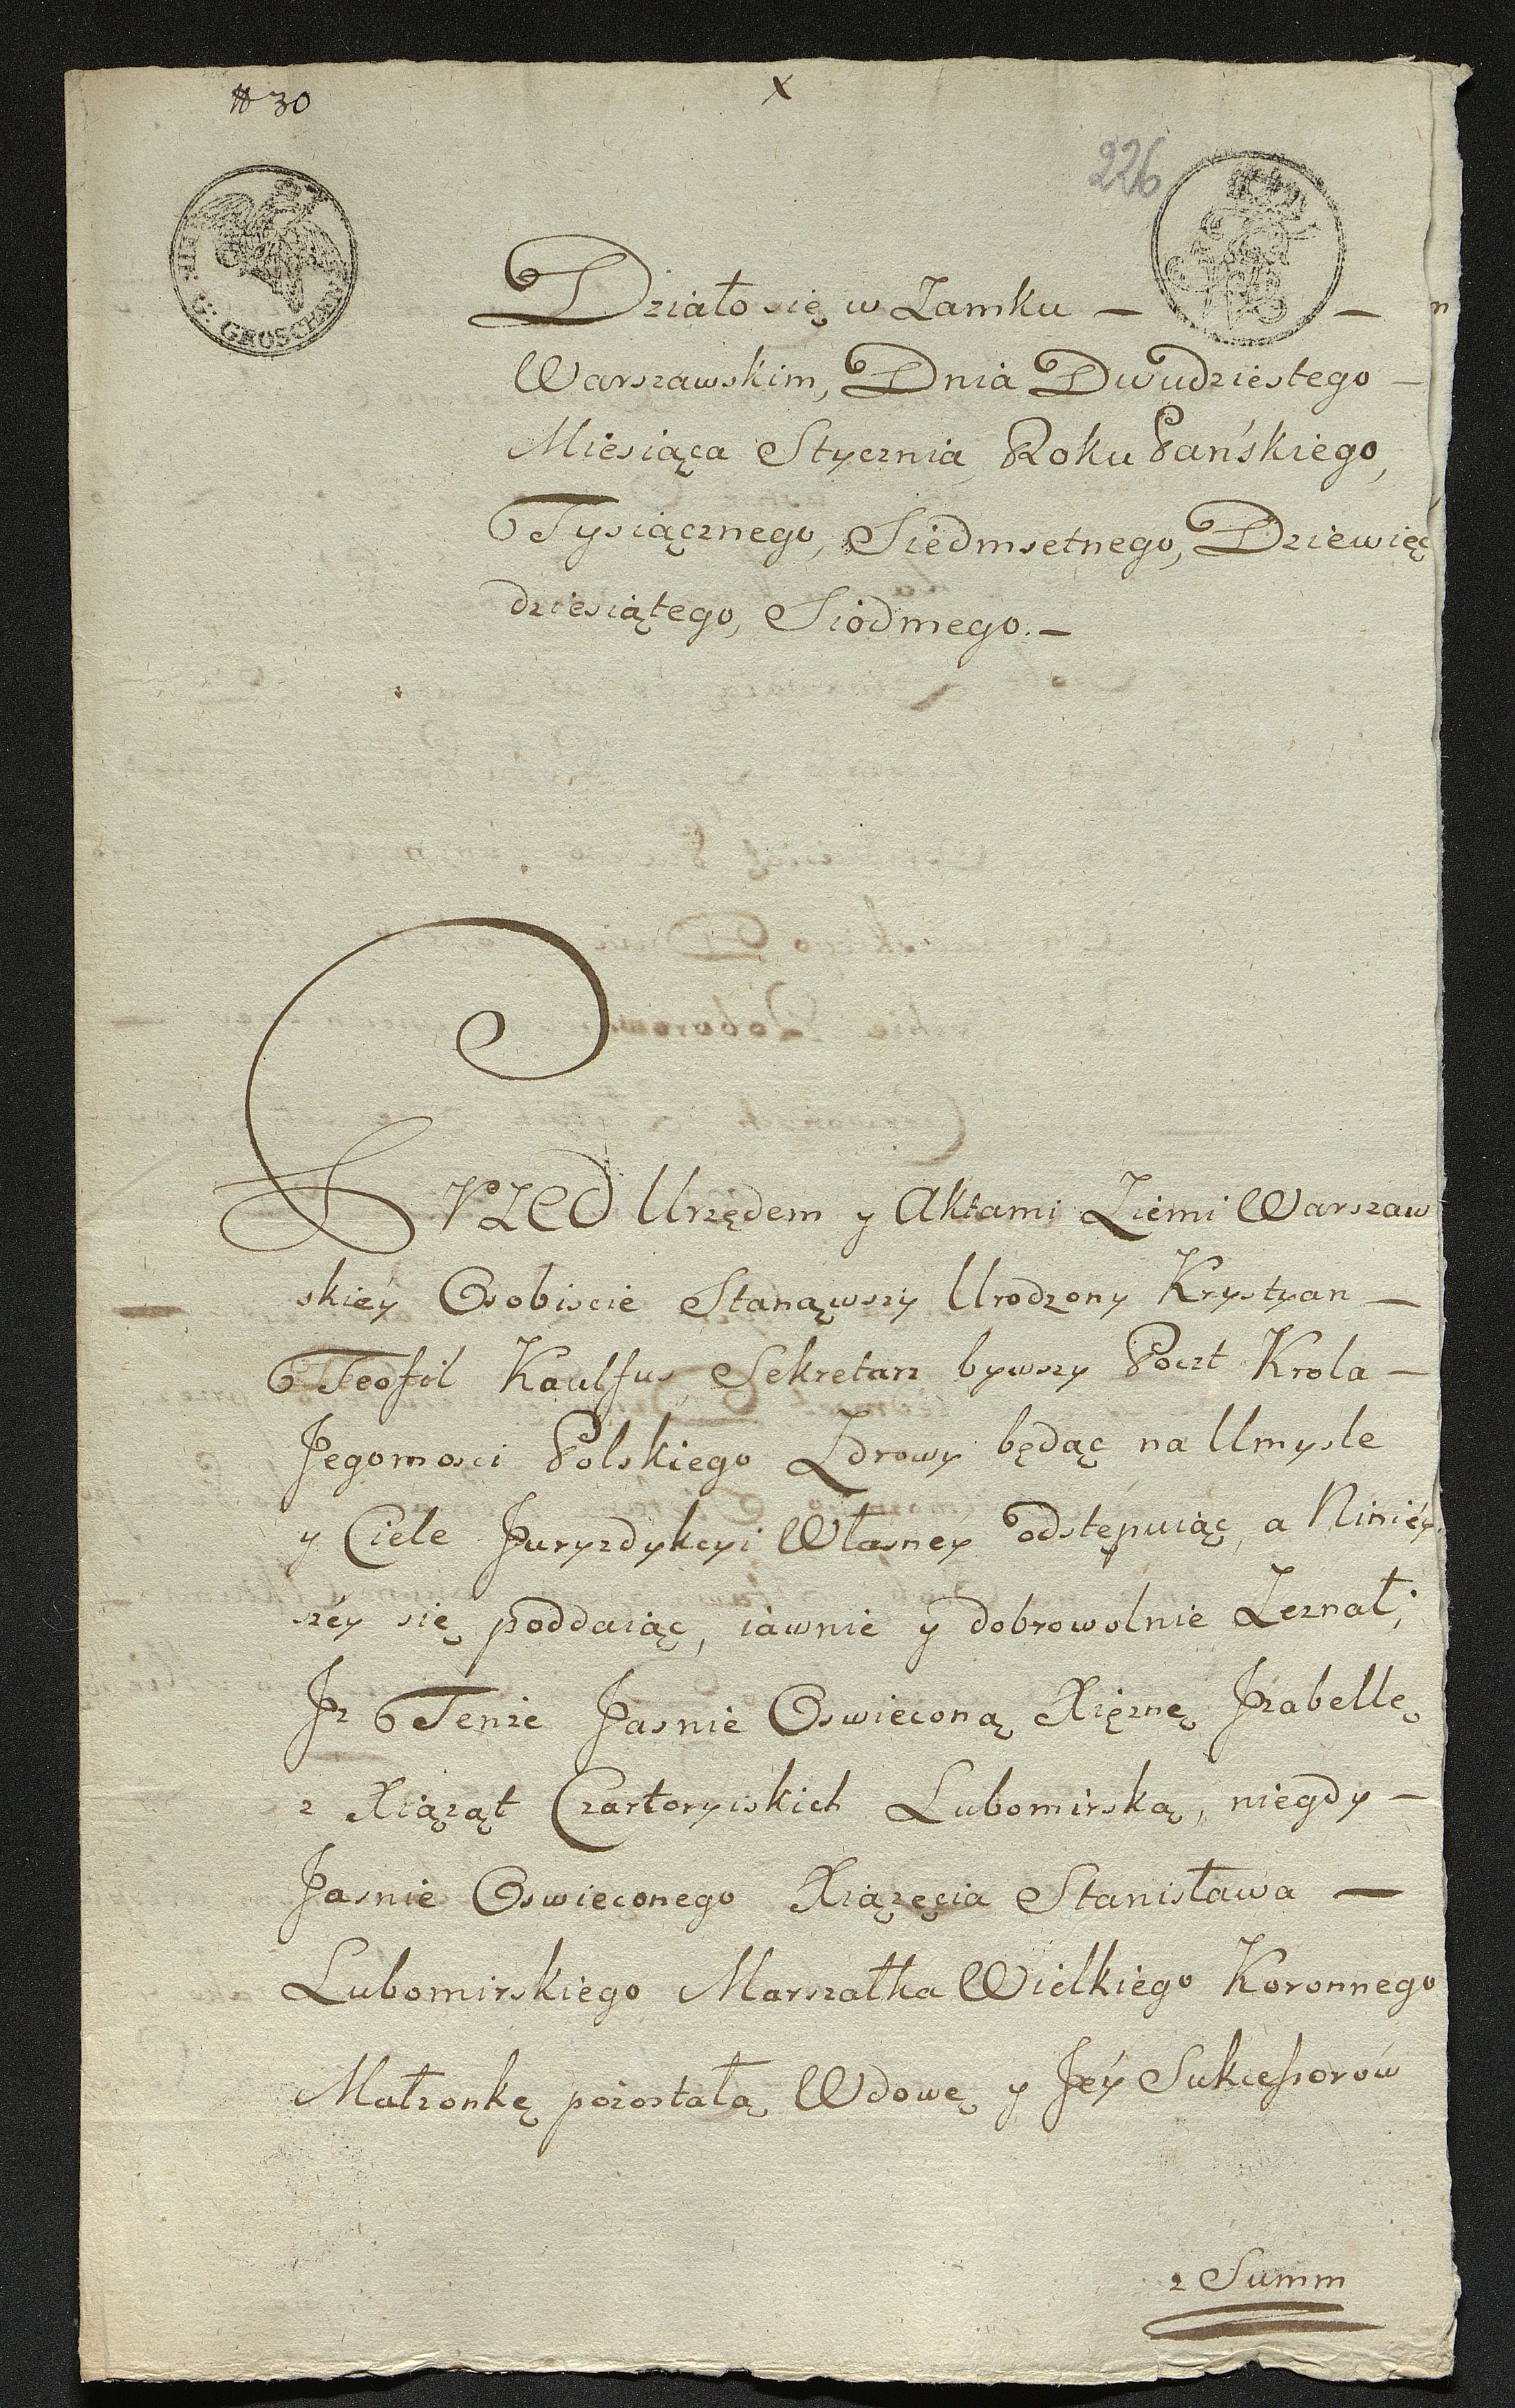 # 30
x
226
G: GROSCHEN
Działo się w Zamku —
Warszawskim, Dnia Dwudziestego —
Miesiąca Stycznia Roku Pańskiego,
Tysiącznego, Siedmsetnego, Dziewięć
dziesiątego, Siodmego. —
Przed Urzędem y Aktami Ziemi Warszaw
skiéy Osobiscie Stanąwszy Urodzony Krystyan —
Teofil Kaulfus Sekretarz bywszy Poczt Krola —
Jegomosci Polskiego Zdrowy będąc na Umysle
y Ciele Juryzdykcyi Własnéy odstępuiąc, a Niniéy
széy się poddaiąc, iawnie y dobrowolnie Zeznał;
Jż Tenże Jasnie Oswieconą Xiężnę Jzabellę
z Xiążąt Czartoryiskich Lubomirską, niegdy —
Jasnie Oswieconego Xiążęcia Stanisława —
Lubomirskiego Marszałka Wielkiego Koronnego
Małżonkę pozostałą Wdowę y Jéy Sukcessorów
z Summ